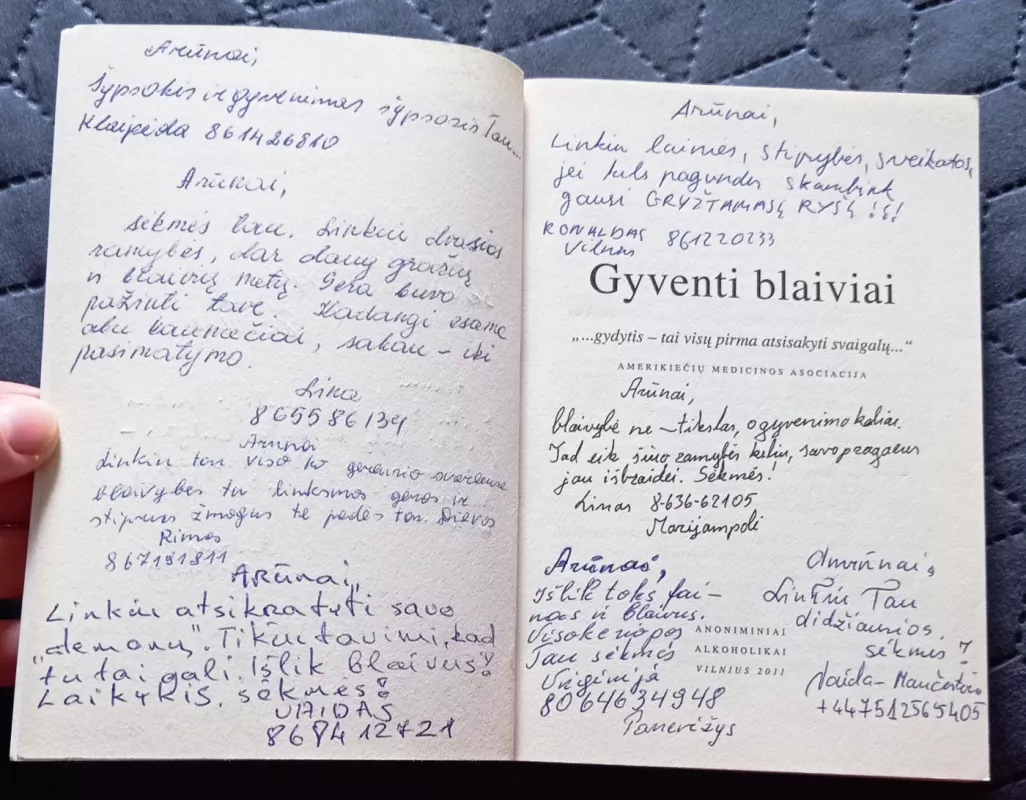 Arūnai,
Šypsokis ir gyvenimas šypsosis Tau...
Klaipėda 861426810
Arūnai,
sėkmės tau. Linkiu dvasios
ramybės, dar daug gražių
ir blaivių metų. Gera buvo
pažinti tave. Kadangi esame
abu kauniečiai, sakau – iki
pasimatymo.
Lina
865586134
Arūnai
Linkiu tau viso ko geriausio
blaivybės tu linksmas geras ir
stiprus žmogus te padės tau Dievas
Rimas
867191811
Arūnai,
Linkiu atsikratyti savo
„demonų". Tikiu tavimi, kad
tu tai gali. Išlik blaivus!
Laikykis. sėkmės!
VAIDAS
868412721
Arūnai,
Linkiu laimės, stiprybės, sveikatos,
jei kils pagundų skambink
gausi GRYŽTAMAJĮ RYŠĮ !!!
RONALDAS 861220233
Vilnius
Gyventi blaiviai
„...gydytis – tai visų pirma atsisakyti svaigalų..."
AMERIKIEČIŲ MEDICINOS ASOCIACIJA
Arūnai,
blaivybė ne – tikslas, o gyvenimo kelias.
Tad eik šiuo ramybės keliu, savo pragaru
jau išbraidei. Sėkmės!
Linas 8-636-62105
Marijampolė
Arūnai,
Išlik toks fai-
nas ir blaivus.
Visokeriopos
Tau sėkmės
Virginija
8064634948
Panevėžys
ANONIMINIAI
ALKOHOLIKAI
VILNIUS 2011
Linkiu Tau
didžiausios
sėkmės!
Naida – Mančesteris
+447512565405